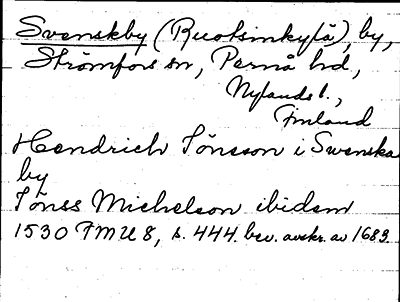 Svenskby (Ruotsinkylä), by,
Strömfors sn, Pernå hd,
Nylands l.,
Finland
Hendrich Jönsson i Swenska
by
Jönss Michelson ibidem
1530 FMU 8, s. 444. bev. avskr. av 1683.